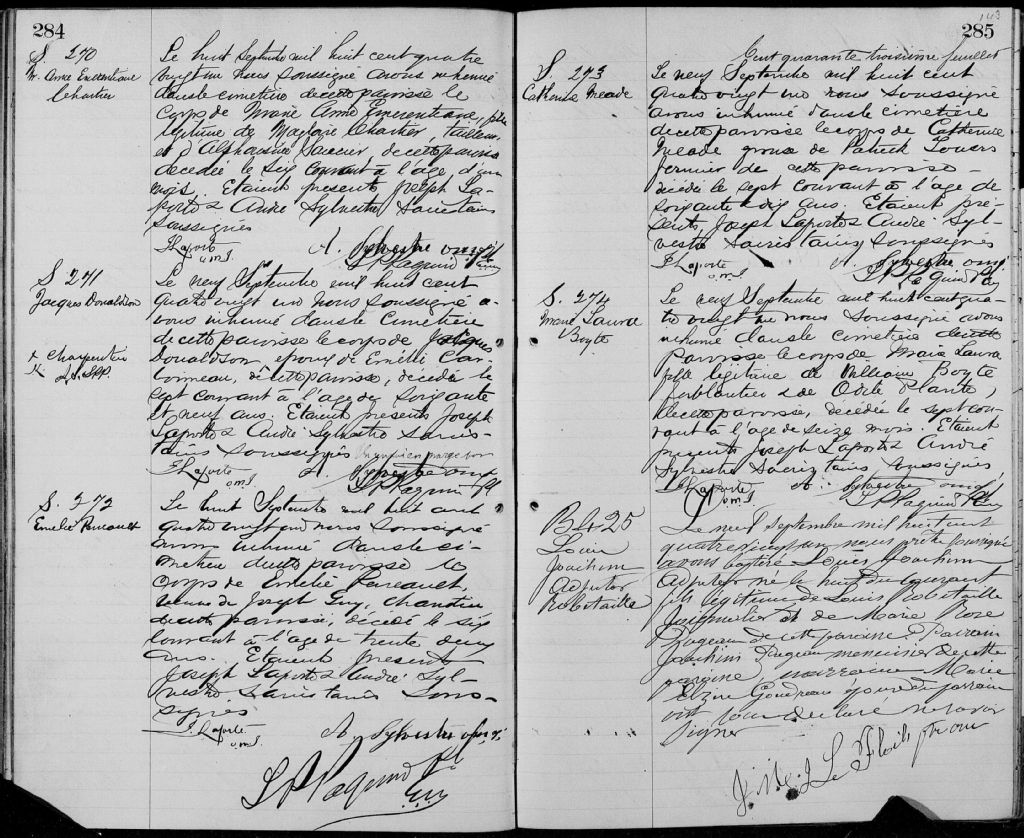 284
S. 270
M. Anne Emerentienne
Chartier
Le huit Septembre mil huit cent quatre
vingt un nous soussigné avons inhumé
dans le cimetière de cette paroisse le
corps de Marie Anne Emerentienne, fille
légitime de Magloire Chartier, tailleur
et d'Alphonsine Saucier, de cette paroisse
décédée le six courant à l'âge d'un
mois. Etaient présents Joseph La-
porte & André Sylvestre Sacristains
soussignés
J Laporte
A. Sylvestre
S. 271
Jacques Donaldson
Le neuf Septembre mil huit cent
quatre vingt un nous soussigné a-
vons inhumé dans le Cimetière
de cette paroisse le corps de Jacques
Donaldson, époux de Emélie Car-
bonneau, de cette paroisse, décédé le
sept courant à l'âge de soixante
et neuf ans. Etaient présents Joseph
Laporte & André Sylvestre sacris-
tains soussignés
x Charpentier
J Laporte
A. Sylvestre
S. 272
Le huit Septembre mil huit cent
quatre vingt un nous soussigné
avons inhumé dans le ci-
metière de cette paroisse le
corps de Emélie
de Joseph Guy,
de cette paroisse, décédé le six
courant à l'âge de trente deux
ans. Etaient présents
Joseph Laporte & André Syl-
vestre Sacristains Sous-
signés
J. Laporte
A. Sylvestre
285
143
Cent quarante troisième feuillet
S. 273
Catherine Meade
Le neuf Septembre mil huit cent
quatre vingt un nous soussigné
avons inhumé dans le cimetière
de cette paroisse le corps de Catherine
Meade épouse de Patrick
fermier de cette paroisse
décédé le sept courant à l'âge de
soixante & dix ans. Etaient pré-
sents Joseph Laporte & André Syl-
vestre Sacristains soussignés
J Laporte
A. Sylvestre
S. 274
Marie Laura
Boyte
Le neuf Septembre mil huit cent qua-
tre vingt un nous Soussigné avons
inhumé dans le cimetière de cette
Paroisse le corps de Marie Laura
fille légitime de William Boyte
ferblantier & de Odile Plante,
de cette paroisse, décédée le sept cou-
rant à l'âge de seize mois. Etaient
présents Joseph Laporte & André
Sylvestre Sacristains soussignés
J Laporte
A. Sylvestre
B 425
Louis
Joachim
Adjutor
Robitaille
Le neuf septembre mil huit cent
quatre vingt un nous prêtre soussigné
avons baptisé Louis Joachim
Adjutor né le huit du courant
fils légitime de Louis Robitaille
journalier et de Marie Rose
de cette paroisse. Parrain
Joachim menuisier de cette
paroisse, marraine Marie
Elzire Goudreau épouse du parrain
ont tous déclaré ne savoir
signer